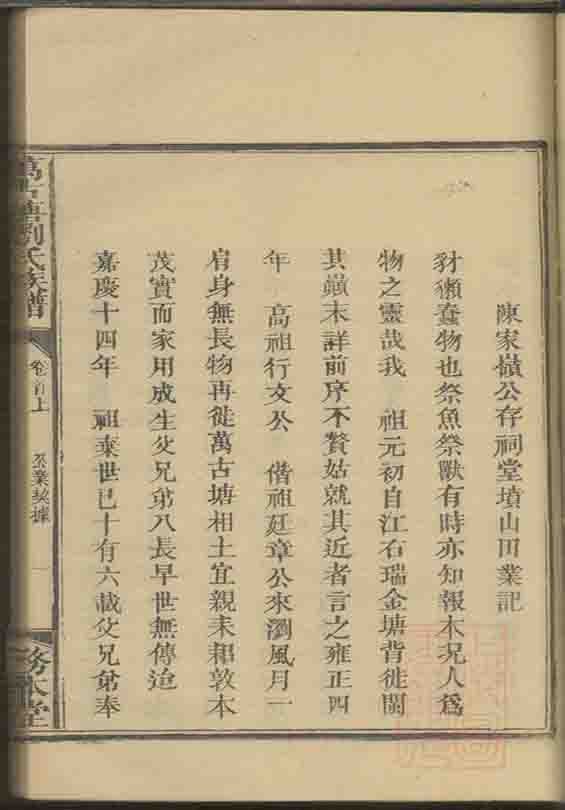 陳家橫公存祠堂墳山田業記
豺獺蠢物也祭魚祭獸有時亦知報本况人爲
物之靈哉我 祖元初自江右瑞金塘背徙閩
其巔末詳前序不贅姑就其近者言之雍正四
年 高祖行文公 偕祖廷章公來瀏風月一
肩身無長物再徙萬古塘相土宜親耒耜敦本
茂實而家用成生父兄弟八長早世無傳迨
嘉慶十四年 祖棄世已十有六載父兄弟奉
萬古塘劉氏族譜
卷首上
公業契據
一
務本堂